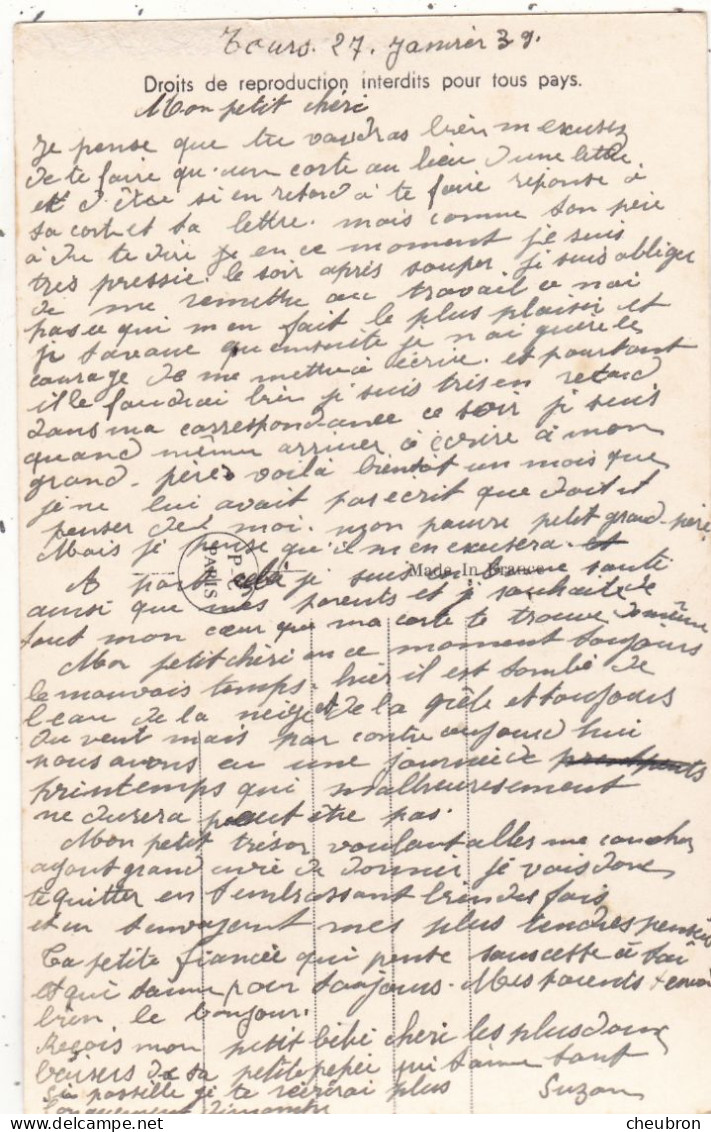 Tours. 27. Janvier 39.
Droits de reproduction interdits pour tous pays.
Mon petit chéri
Je pense que tu voudras bien m excuser
de te faire qu. une carte au lieu d une lettre
et d être si en retard à te faire réponse à
ta carte et ta lettre. mais comme ton père
à du te dire je en ce moment je suis
très pressée. le soir après souper je suis obliger
de me remettre au travail ce n ai
pas ce qui m en fait le plus plaisir et
je t avoue qu ensuite je n ai guère le
courage de me mettre à écrire. et pourtant
il le faudrai bien je suis tris en retard
dans ma correspondance ce soir je suis
quand même arriver à écrire à mon
grand-père voilà bientôt un mois que
je ne lui avait pas écrit que doit il
penser de moi. mon pauvre petit grand-père
Mais je pense qu'il m en excusera. et
PARIS
Made In France
A part cela je suis en bonne santé
ainsi que mes parents et je souhaite de
tout mon cœur que ma carte te trouve de même
Mon petit chéri en ce moment toujours
le mauvais temps. hier il est tombé de
l eau de la neige et de la grêle et toujours
du vent mais par contre aujourd hui
nous avons eu une journée de printemps
printemps qui malheureusement
ne durera peut être pas.
Mon petit trésor voulant aller me coucher
ayant grand envie de dormir je vais donc
te quitter en t embrassant bien des fois
et en t envoyant mes plus tendres pensées
Ta petite fiancée qui pense sans cesse à toi
et qui t aime pour toujours. Mes parents t envoi
bien le bonjour.
Reçois mon petit bébé chéri les plus doux
baisers de ta petite pepée qui t aime tant
Si possible je te récrirai plus Suzon
longuement dimanche